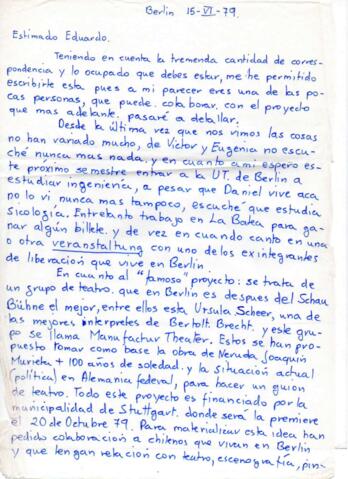 Berlin 15-VI-79.
Estimado Eduardo.
Teniendo en cuenta la tremenda cantidad de corres-
pondencia y lo ocupado que debes estar, me he permitido
escribirte esta pues a mi parecer eres una de las po-
cas personas, que puede colaborar con el proyecto
que mas adelante pasaré a detallar.
Desde la última vez que nos vimos las cosas
no han variado mucho, de Victor y Eugenia no escu-
ché nunca mas nada, y en cuanto a mi espero es-
te proximo semestre entrar a la UT. de Berlin a
estudiar ingenieria, a pesar que Daniel vive aca
no lo vi nunca mas tampoco, escuché que estudia
sicologia. Entretanto trabajo en La Batea para ga-
nar algún billete. y de vez en cuando canto en una
o otra veranstaltung con uno de los exintegrantes
de liberación que vive en Berlin.
En cuanto al "famoso" proyecto: se trata de
un grupo de teatro. que en Berlin es despues del Schau
Bühne el mejor, entre ellos esta Ursula Scheer, una de
las mejores interpretes de Bertolt. Brecht. y este gru-
po se llama Manufactur Theater. Estos se han pro-
puesto tomar como base la obra de Neruda Joaquin
Murieta + 100 años de soledad. y la situación actual
(politica) en Alemania federal, para hacer un guion
de teatro. Todo este proyecto es financiado por la
municipalidad de Stuttgart. donde será la premiere
el 20 de Octubre 79. Para materializar esta idea han
pedido colaboración a chilenos que vivan en Berlin
y que tengan relación con teatro, escenografía, pin-